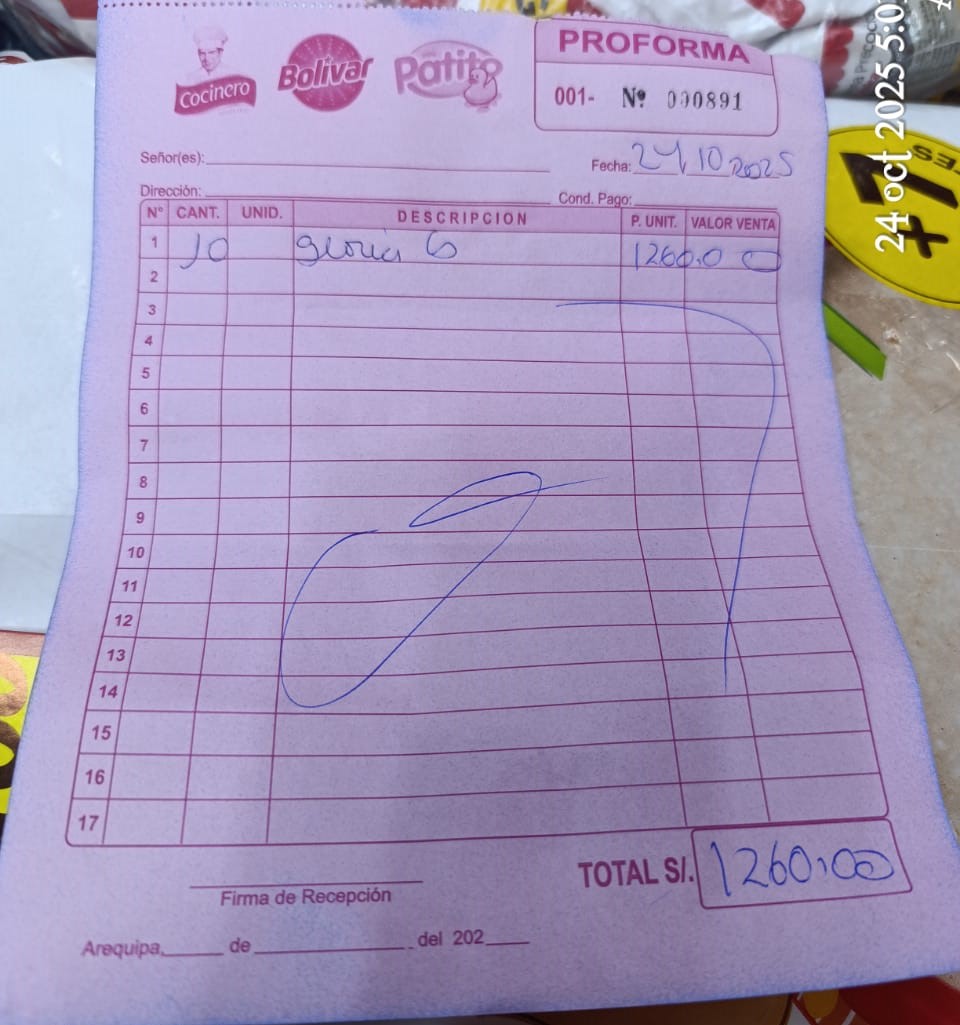 Cocinero
Bolivar
Patito
PROFORMA
001- Nº 000891
Señor(es):
Fecha: 24/10 2025
Dirección:
Cond. Pago:
Nº CANT. UNID. DESCRIPCION P. UNIT. VALOR VENTA
1 10 gloria G 1260.00
2
3
4
5
6
7
8
9
10
11
12
13
14
15
16
17
TOTAL S/. 1260.00
Firma de Recepción
Arequipa, de del 202
24 oct 2025 5:0